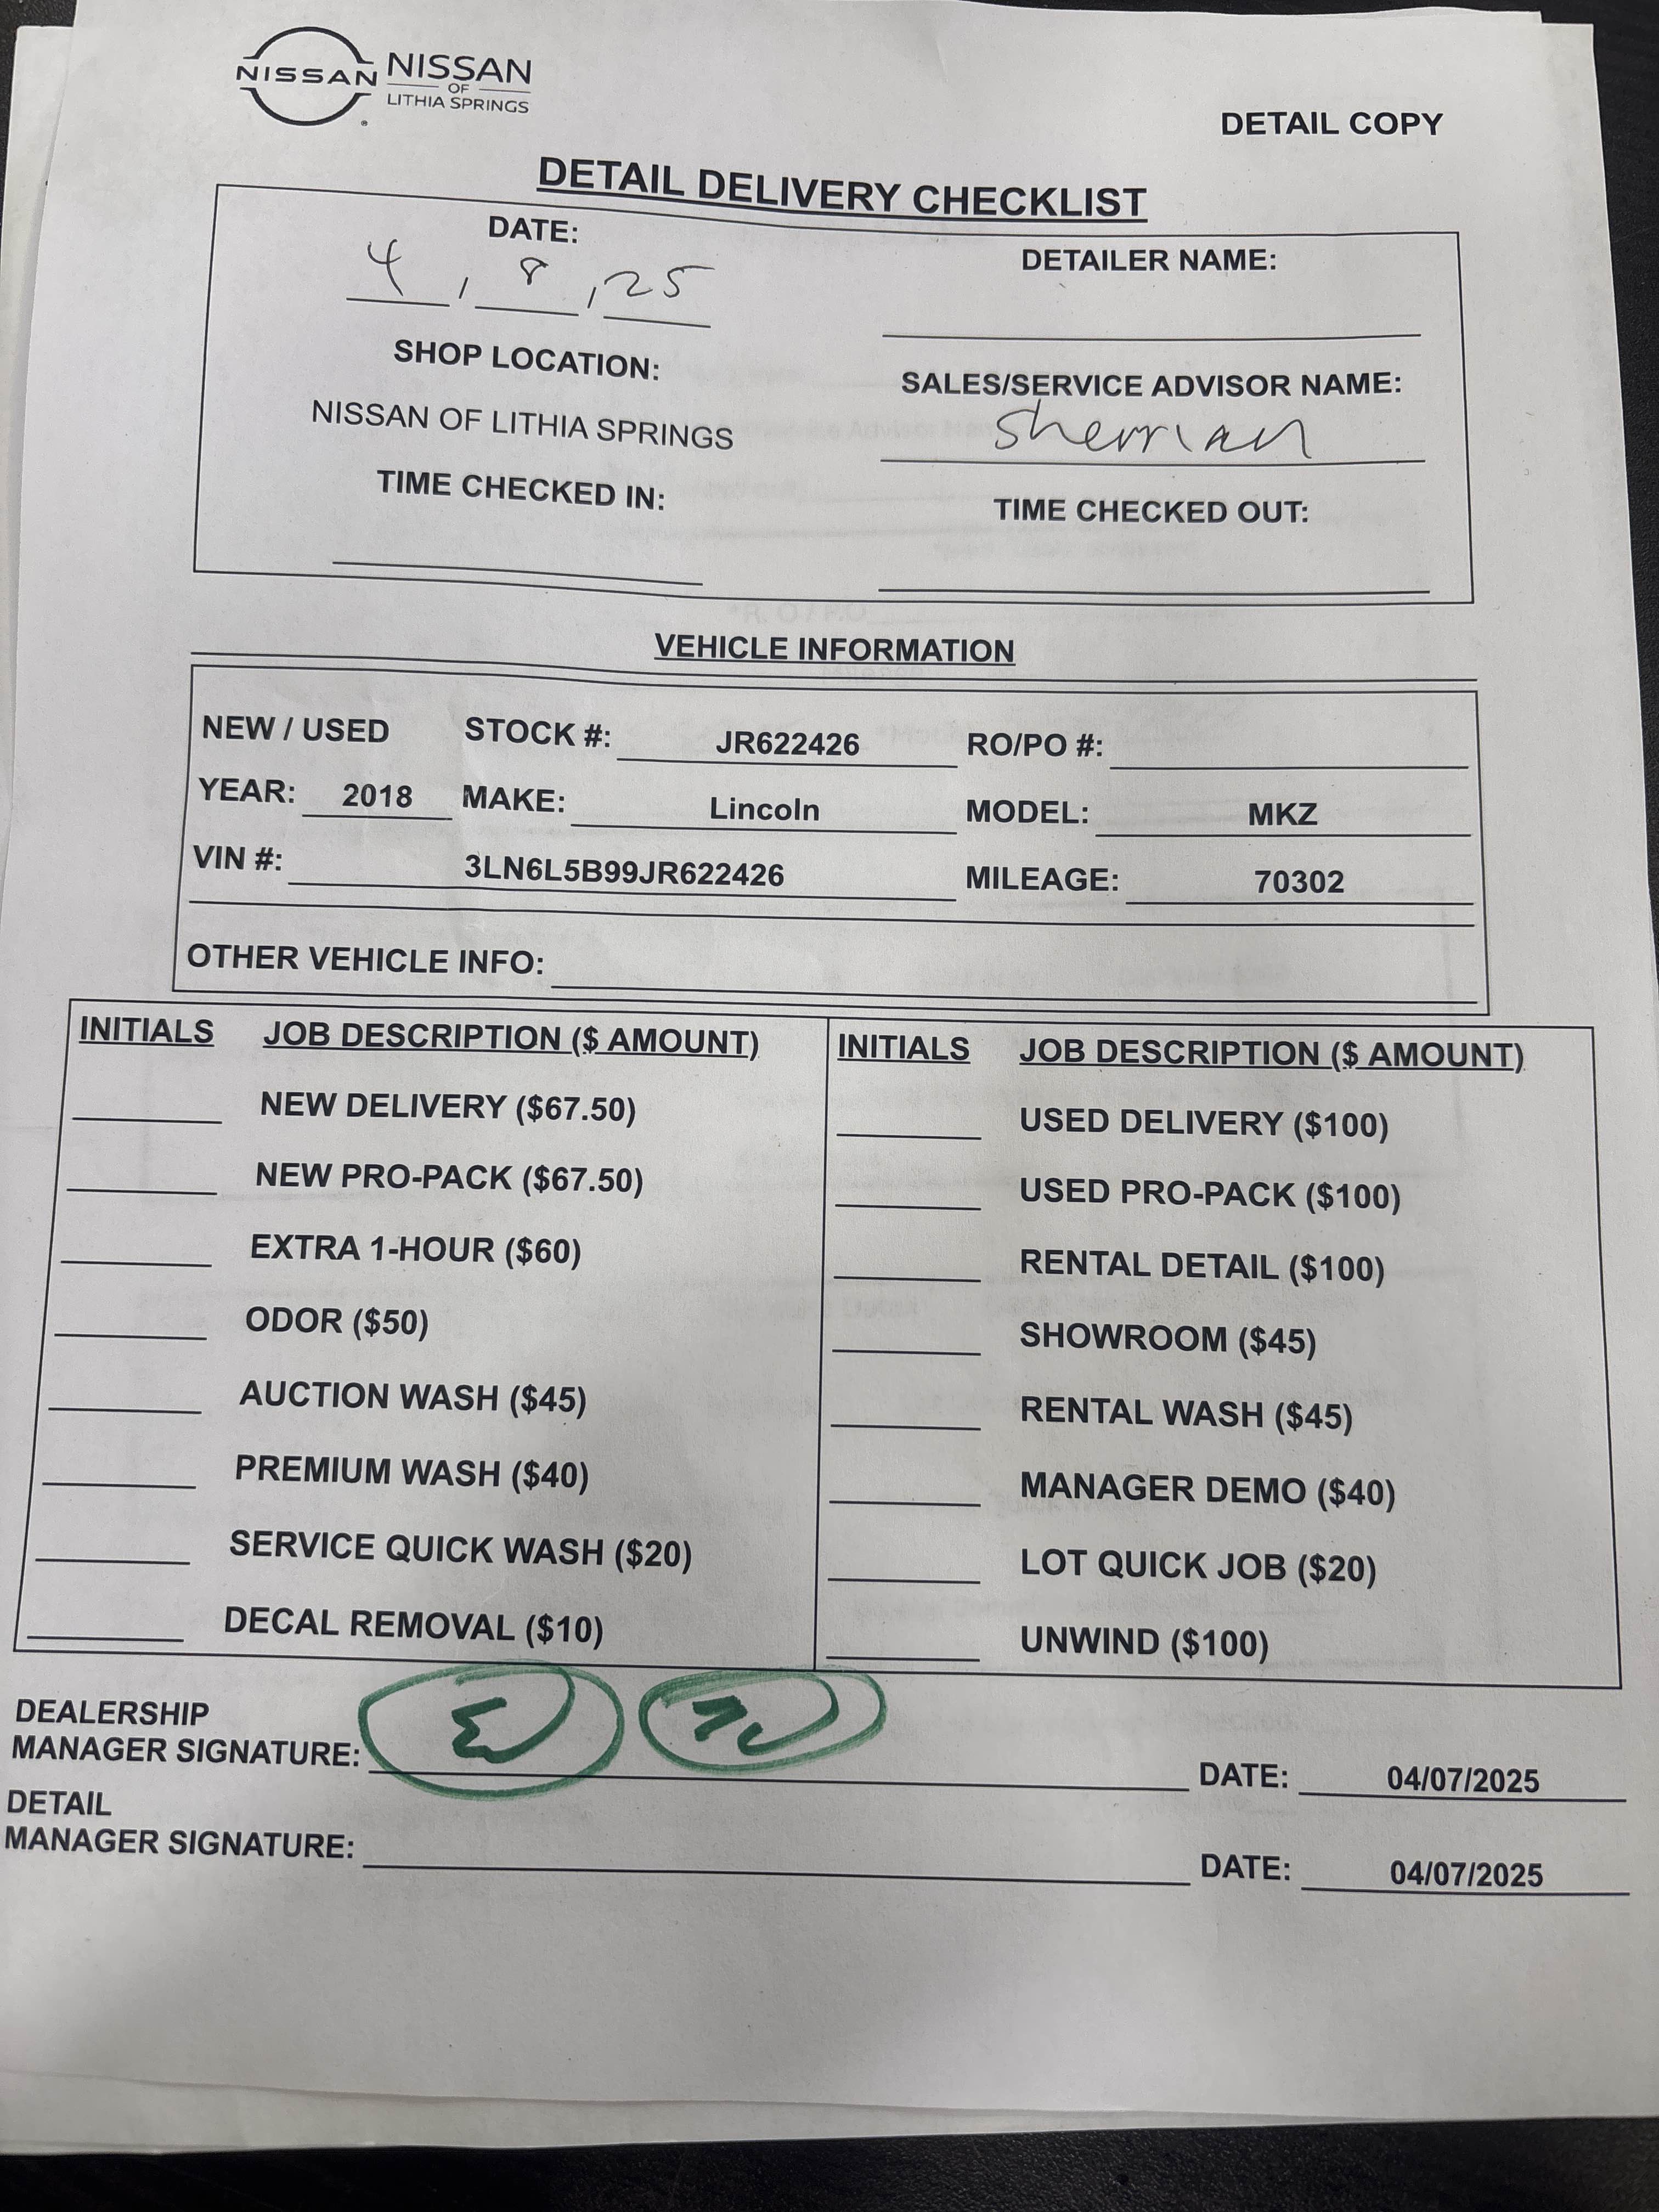 NISSAN NISSAN
OF
LITHIA SPRINGS
DETAIL COPY
DETAIL DELIVERY CHECKLIST
DATE:
4 / 8 / 25
DETAILER NAME:
SHOP LOCATION:
NISSAN OF LITHIA SPRINGS
SALES/SERVICE ADVISOR NAME:
Sherrian
TIME CHECKED IN:
TIME CHECKED OUT:
VEHICLE INFORMATION
NEW / USED STOCK #: JR622426 RO/PO #:
YEAR: 2018 MAKE: Lincoln MODEL: MKZ
VIN #: 3LN6L5B99JR622426 MILEAGE: 70302
OTHER VEHICLE INFO:
INITIALS JOB DESCRIPTION ($ AMOUNT)
NEW DELIVERY ($67.50)
NEW PRO-PACK ($67.50)
EXTRA 1-HOUR ($60)
ODOR ($50)
AUCTION WASH ($45)
PREMIUM WASH ($40)
SERVICE QUICK WASH ($20)
DECAL REMOVAL ($10)
INITIALS JOB DESCRIPTION ($ AMOUNT)
USED DELIVERY ($100)
USED PRO-PACK ($100)
RENTAL DETAIL ($100)
SHOWROOM ($45)
RENTAL WASH ($45)
MANAGER DEMO ($40)
LOT QUICK JOB ($20)
UNWIND ($100)
DEALERSHIP
MANAGER SIGNATURE: DATE: 04/07/2025
DETAIL
MANAGER SIGNATURE: DATE: 04/07/2025